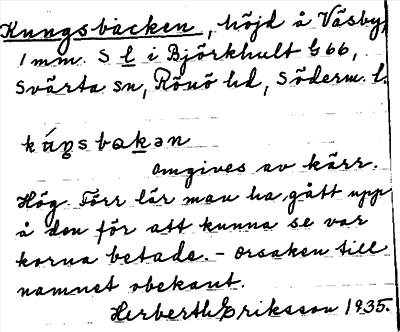 Kungsbacken, höjd å Väsby,
1 mm. S l i Björkhult G 66,
Svärta sn, Rönö hd, Söderm. l.
káŋsbakən
omgives av kärr.
Hög. Förr lär man ha gått upp
å den för att kunna se var
korna betade. – Orsaken till
namnet obekant.
Herberth Eriksson 1935.